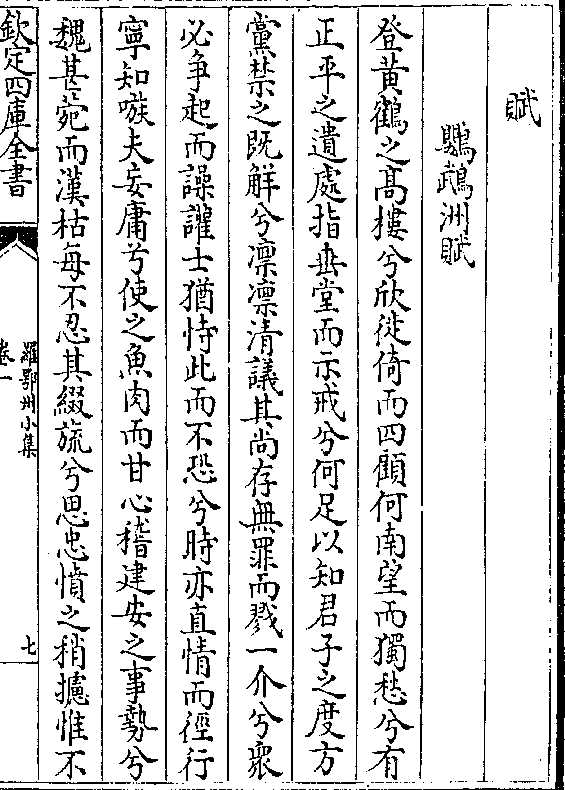 賦
鸚鵡洲賦
登黄鶴之髙樓兮欣徙倚而四顧何南望而獨愁兮有
正平之遺處指垂堂而示戒兮何足以知君子之度方
黨禁之既解兮凛凛清議其尚存無罪而戮一介兮衆
必争起而譟讙士猶恃此而不恐兮時亦直情而徑行
寧知嗾夫妄庸兮使之魚肉而甘心稽建安之事勢兮
魏甚菀而漢枯每不忍其綴旒兮思忠憤之稍攄惟不
欽定四庫全書
羅鄂州小集
卷一
七